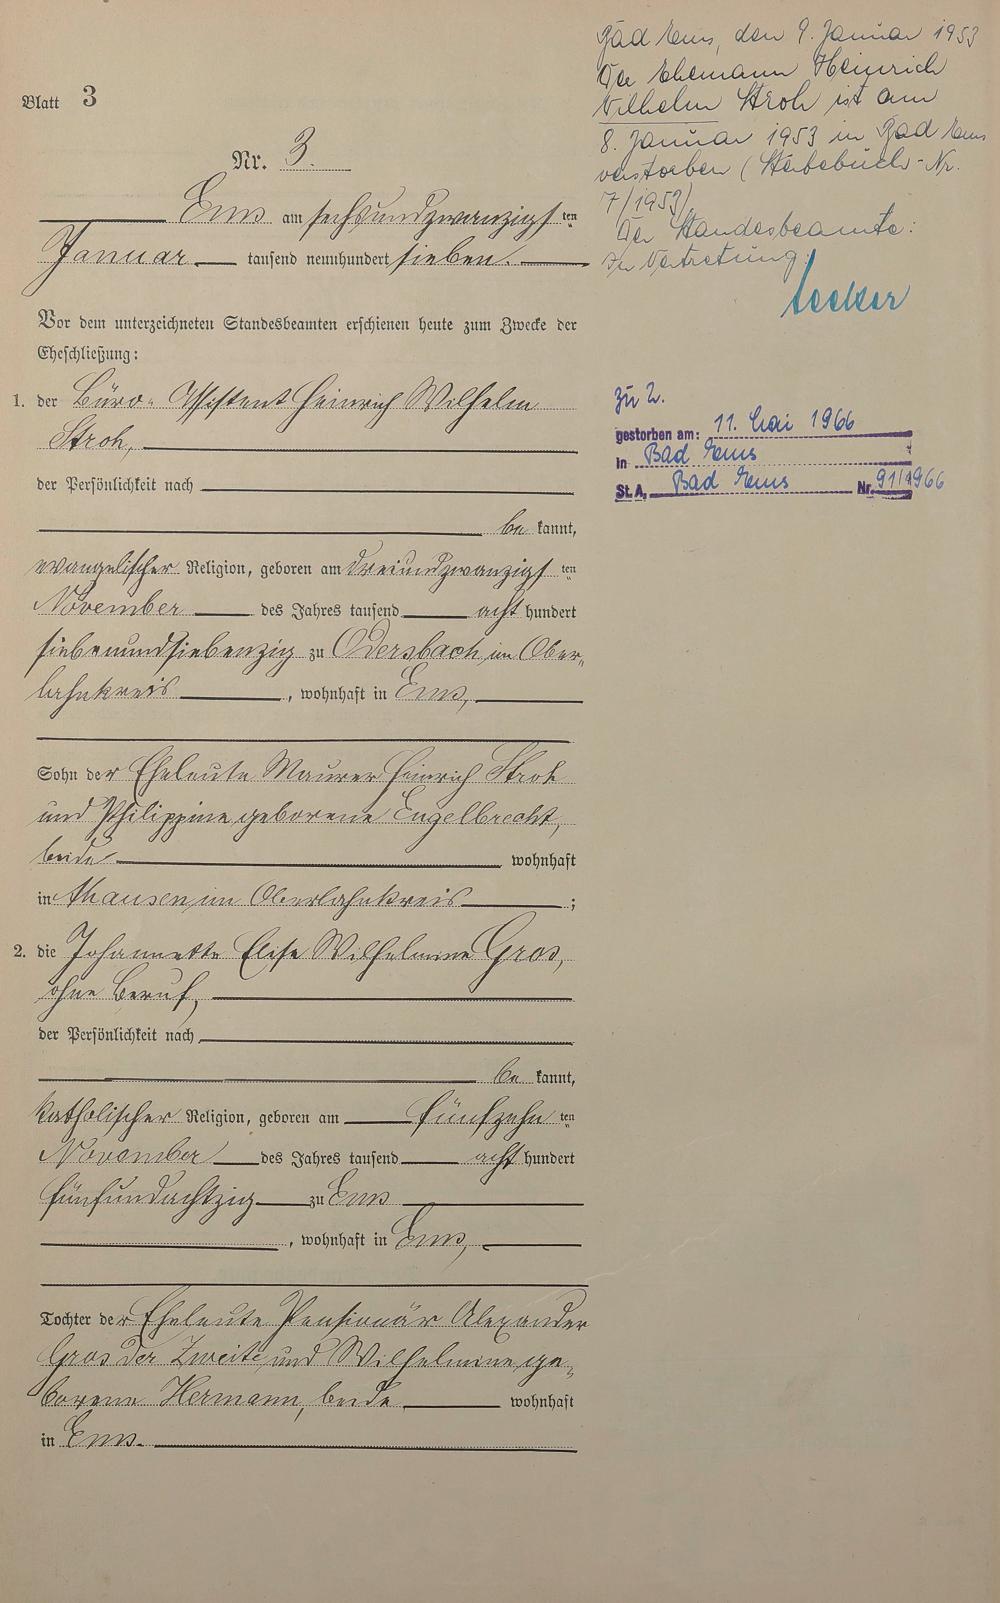 Blatt 3
Nr. 3.
Ems am sechsundzwanzigsten
Januar tausend neunhundert sieben.
Vor dem unterzeichneten Standesbeamten erschienen heute zum Zwecke der
Eheschließung:
1. der Büro-Assistent Heinrich Wilhelm
Stroh,
der Persönlichkeit nach
be kannt,
evangelischer Religion, geboren am dreiundzwanzigsten
November des Jahres tausend acht hundert
siebenundsiebenzig zu Odersbach im Ober-
lahnkreis, wohnhaft in Ems,
Sohn der Eheleute Maurer Heinrich Stroh
und Philippine geborene Engelbrecht,
beide wohnhaft
in hausen im Oberlahnkreis;
2. die Johannette Elise Wilhelmine Gros,
ohne Beruf,
der Persönlichkeit nach
be kannt,
katholischer Religion, geboren am fünfzehnten
November des Jahres tausend acht hundert
fünfundachtzig zu Ems
, wohnhaft in Ems,
Tochter der Eheleute Pensionär Alexander
Gros der Zweite und Wilhelmine ge-
borene Hermann, beide wohnhaft
in Ems.
Bad Ems, den 9. Januar 1953
Der Ehemann Heinrich
Wilhelm Stroh ist am
8. Januar 1953 in Bad Ems
verstorben (Sterbebuch-Nr.
7/1953).
Der Standesbeamte:
In Vertretung:
zu 2.
gestorben am: 11. Mai 1966
in Bad Ems
St. A. Bad Ems Nr. 91/1966